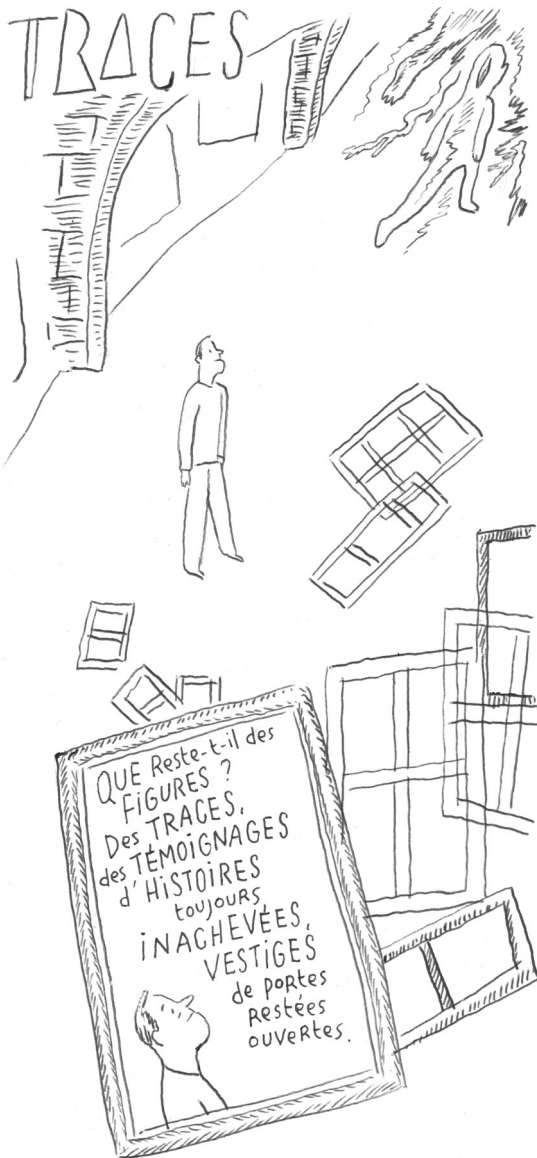 TRACES
QUE Reste-t-il des
FIGURES ?
Des TRACES,
des TÉMOIGNAGES
d'HISTOIRES
toujours
INACHEVÉES,
VESTIGES
de portes
Restées
ouvertes.